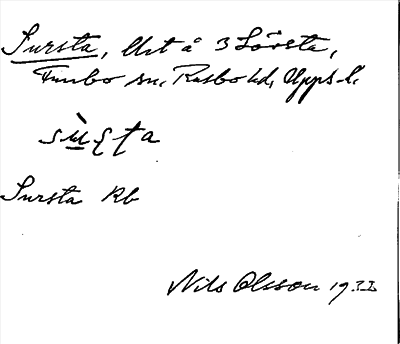 Sursta, Utt å 3 Lörsta,
Funbo sn, Rasbo hd, Upps. l.
Sursta Rb
Nils Olsson 1933